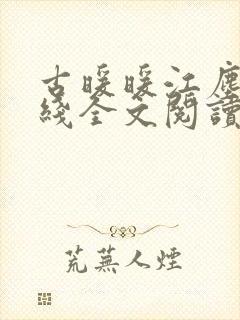 古暖暖江塵
綫全文閱讀
荒蕪人煙